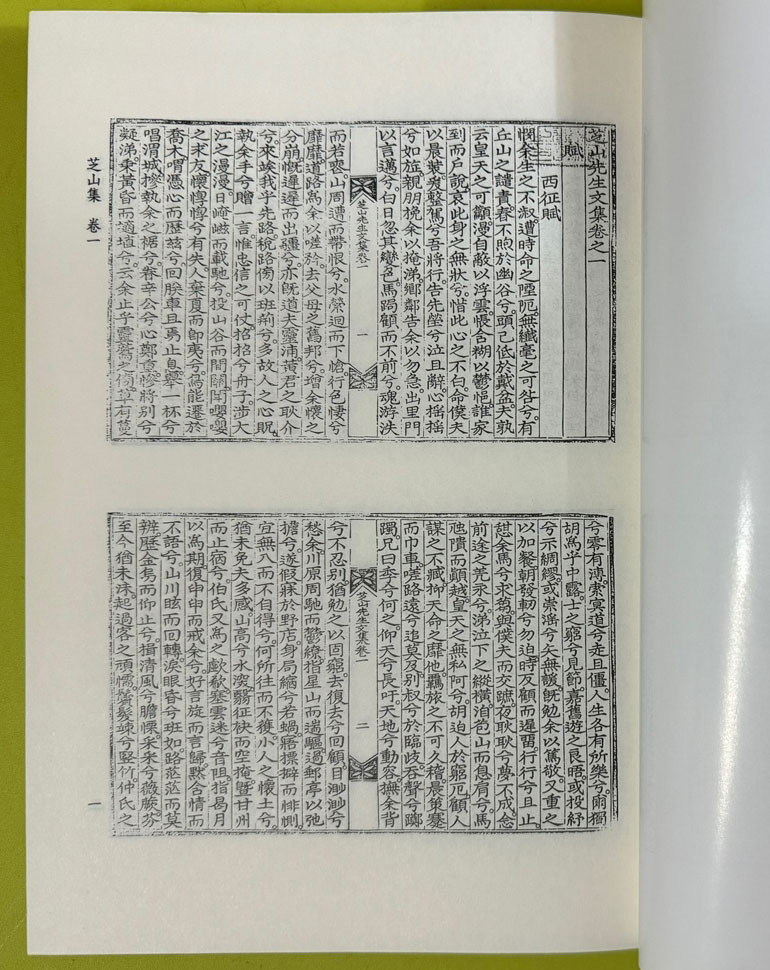 芝山先生文集卷之一
賦
西征賦
憫余生之不淑。遭時命之陻阨。無纖毫之可咎兮。有
丘山之譴。靑春不煦於幽谷兮。頭已低於戴盆。夫孰
云皇天之可籲。漫自敵以浮雲。悵舌糊以鬱悒。誰家
到而戶說。哀此身之無狀兮。惜此心之不白。命僕夫
以晨裝。爰整駕兮吾將行。告先塋兮泣且辭。心搖搖
兮如旌。親朋挽余以掩涕。鄕鄰告余以勿急。出里門
以言邁兮。白日忽其變色。馬跼顧而不前兮。魂游泆
芝山先生文集卷一 一
而若喪。山周遭而帶恨兮。水縈迴而下愴。行色悽兮
靡靡。道路爲余以嗟於。去父母之舊邦兮。增余懷之
分崩。旣遲遲而出疆兮。亦旣道夫靈浦。黃君之耿介
兮。來竢我乎先路。稅路傍以班荊兮。多故人之心貺。
執余手兮贈一言。惟忠信之可仗。招招兮舟子。涉大
江之漫漫。日崦嵫而載馳兮。投山谷而間關。聞嚶嚶
之求友。懷惸惸兮有失人。棄夏而卽夷兮。焉能遷於
喬木。喟憑心而歷玆兮。回朕車且焉止息。擧一杯兮
唱渭城。摻執余之裾兮。眷辛公兮心鄭重。慘將別兮
凝涕。乘黃昏而適埴兮。云余止乎靈鷲之傍。草有蔓
兮零有漙。索冥道兮走且僵。人生各有所樂兮。爾獨
胡爲乎中露。士之窮兮見節。嘉舊遊之良晤。或投紵
兮示綢繆。或崇滛兮矢無諼。旣勉余以篤敬。又重之
以加餐。朝發軔兮勿迫。時反顧而遲留。行行兮且止。
愆余馬兮求蒭。與僕夫而交蹠。夜耿耿兮夢不成。念
前途之荒永兮。涕泣下之縱橫。洎苞山而息肩兮。馬
虺隤而顚越。皇天之無私阿兮。胡迫人於窮戹。顧人
謀之不臧。抑天命之靡他。羈旅之不可久稽。晨策蹇
而巾車。嗟路遠兮追莫及。別叔兮於臨歧。呑聲兮躑
躅。兄曰季兮何之。仰天兮長吁。天地兮動容。撫余背
芝山先生文集卷一 二
兮不忍別。猶勉之以固窮。去復去兮回顧。目渺渺兮
愁余。川原周馳而鬱繚。指星山而遄驅。過郵亭以弛
擔兮。遂假寐於野店。身局縮兮若蝸。寤摽擗而悱惻。
宜無入而不自得兮。何所往而不獲。小人之懷土兮。
猶未免夫多感。山高兮水深。翳征袂而空掩。曁甘州
而止宿兮。伯氏又爲之歔欷。塞雲迷兮音阻。指曷月
以爲期。復申申而戒余兮。好言旋而言歸。默含情而
不語兮。山川眩而回轉。淚眼昏兮班如。路茫茫而莫
辨。歷金烏而仰止兮。揖清風兮膽慄。采采兮薇蕨。芬
至今猶未沬。起過客之頑懦。鬢髮竦兮竪竹。仲氏之
芝山集 卷一
一